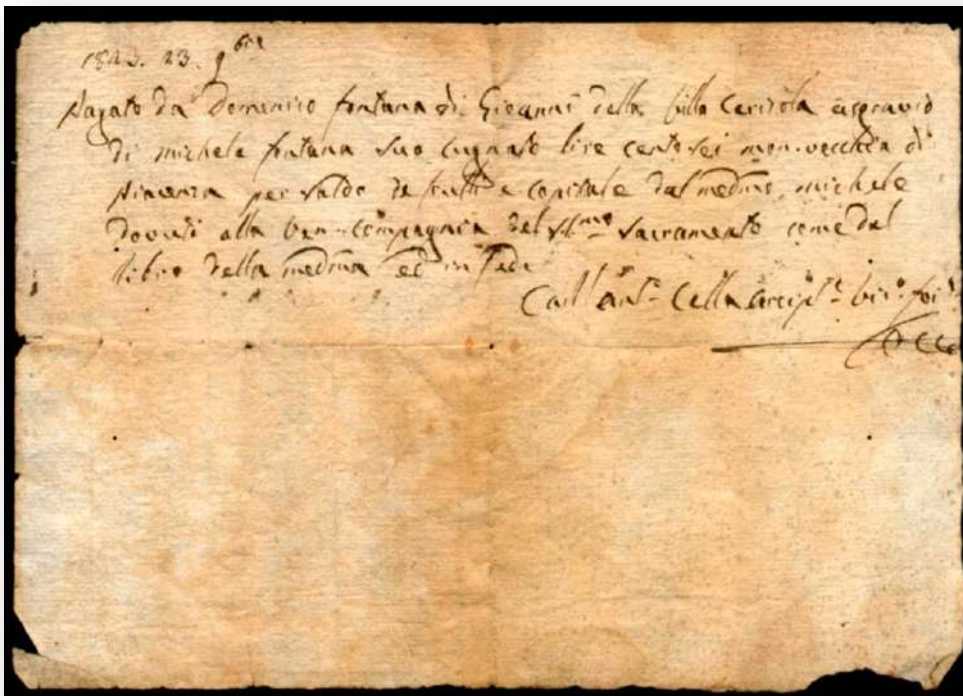 1823. 23. 9bre
Pagato da Domenico fontana di Giovanni della villa Cerisola a sgravio
di michele fontana suo cugnato lire cento sei mon. vecchia di
Piacenza per saldo de frutti e capitale dal medmo michele
dovuti alla Ven. Compagnia del SSmo Sacramento come dal
libro della medma ed in fede
Carl' Ant. Cella Arcip.